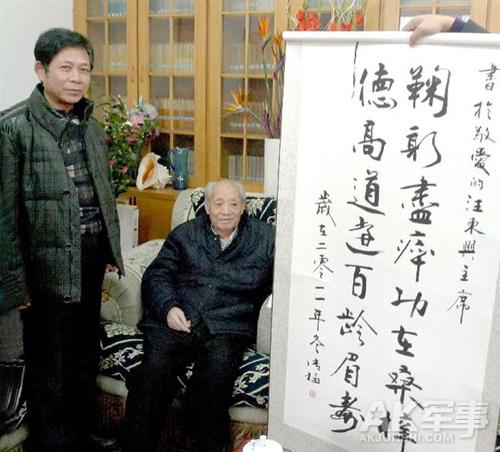 書於敬愛的汪東興主席
鞠躬盡瘁功在桑梓
德高道遠百齡眉壽
歲在二零一一年冬
AK军事
AKJUNSHI.COM